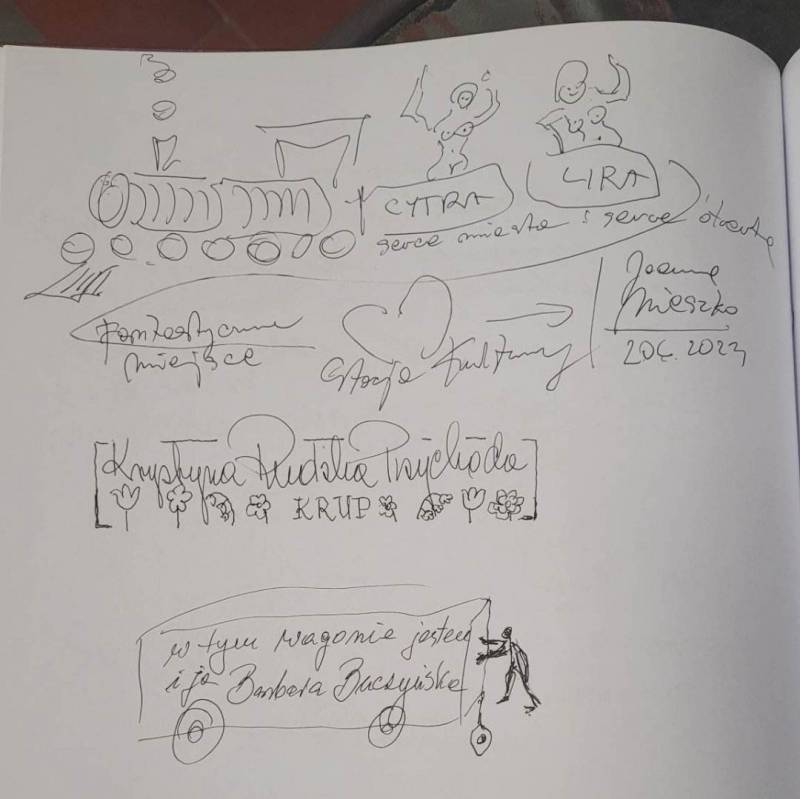 CYTRA
LIRA
serce miasta i serce otwarte
Fantastyczne
miejsce
Stacja Kultury
Joanna
Mieszko
2023
Krystyna Rudzka Przychoda
KRUP
w tym wagonie jestem
i ja Barbara Buczyńska